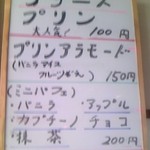 プリン
大人気! 100円
プリンアラモード
(バニラアイス
フルーツ 150円
(ミニパフェ)
・バニラ ・アップル
・カプチーノ チョコ
・抹茶 200円